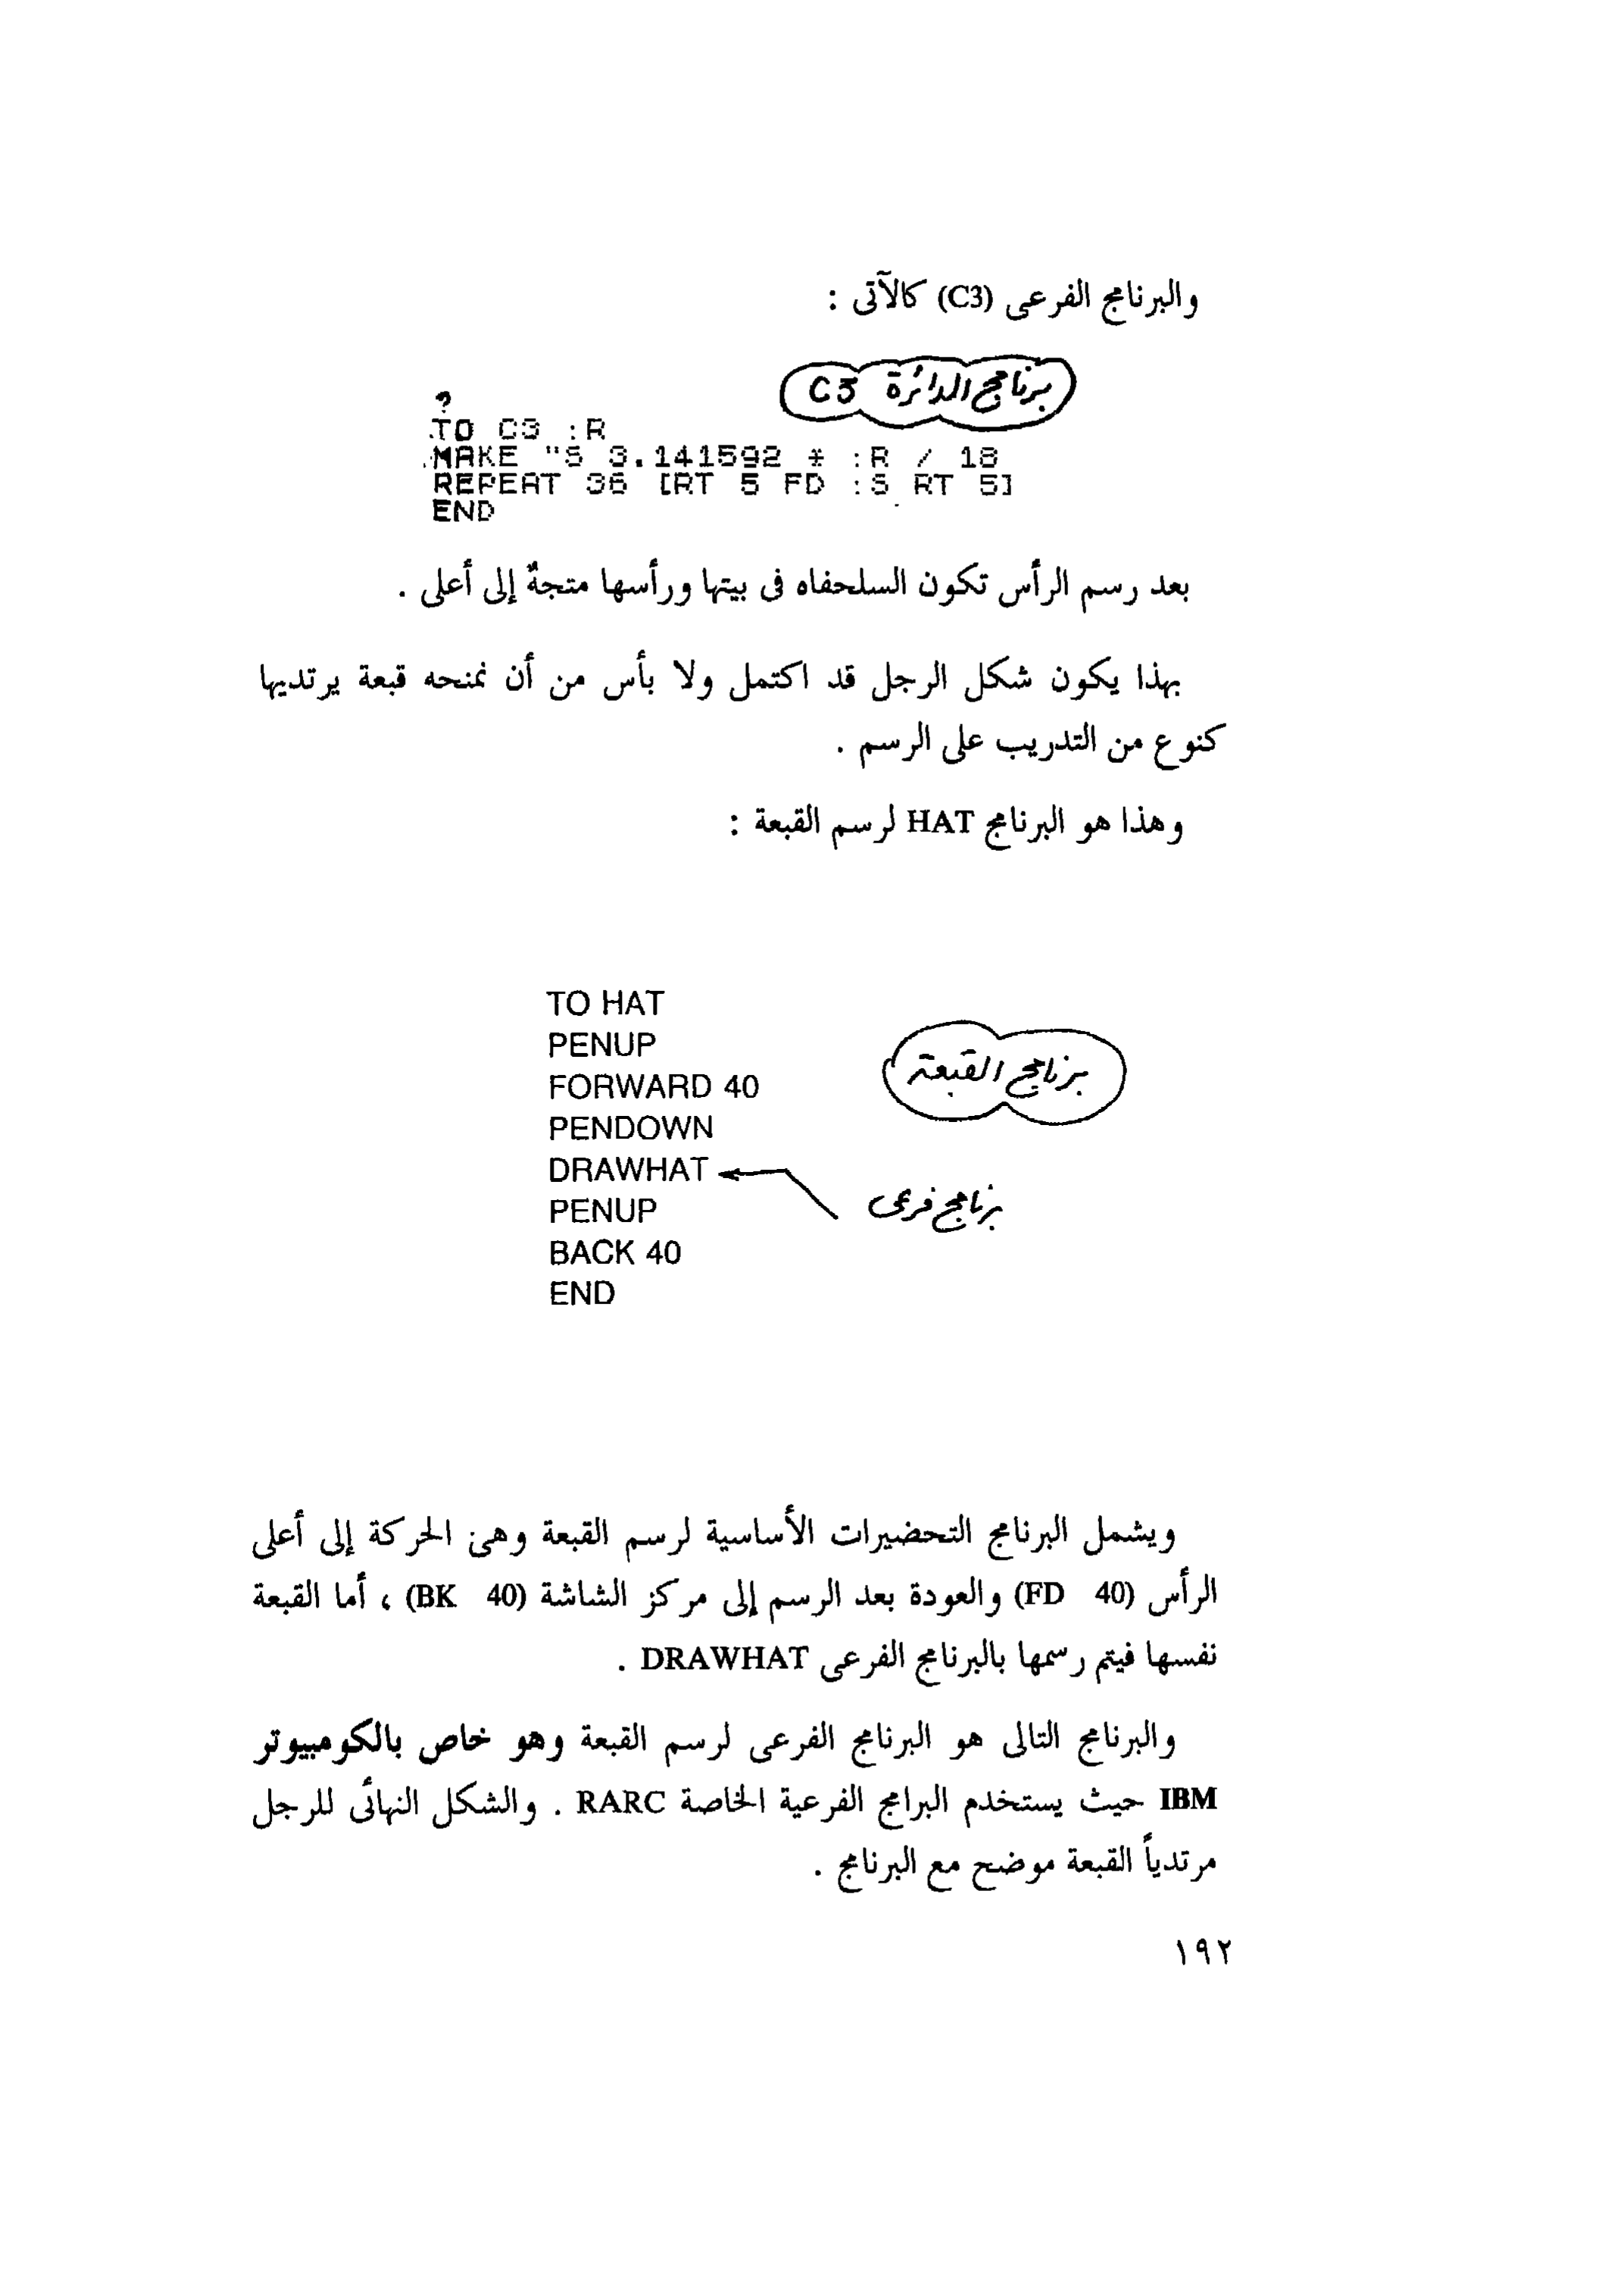 والبرنامج الفرعى (C3) كالآتى :
برنامج الدائرة C3
?
TO C3 :R
MAKE "S 3.141592 * :R / 18
REPEAT 36 [RT 5 FD :S RT 5]
END
بعد رسم الرأس تكون السلحفاه فى بيتها ورأسها متجهٌ إلى أعلى .
بهذا يكون شكل الرجل قد اكتمل ولا بأس من أن نمنحه قبعة يرتديها
كنوع من التدريب على الرسم .
وهذا هو البرنامج HAT لرسم القبعة :
TO HAT
PENUP
FORWARD 40
برنامج القبعة
PENDOWN
DRAWHAT
برنامج فرعى
PENUP
BACK 40
END
ويشمل البرنامج التحضيرات الأساسية لرسم القبعة وهى الحركة إلى أعلى
الرأس (FD 40) والعودة بعد الرسم إلى مركز الشاشة (BK 40) ، أما القبعة
نفسها فيتم رسمها بالبرنامج الفرعى DRAWHAT .
والبرنامج التالى هو البرنامج الفرعى لرسم القبعة وهو خاص بالكومبيوتر
IBM حيث يستخدم البرامج الفرعية الخاصة RARC . والشكل النهائى للرجل
مرتدياً القبعة موضح مع البرنامج .
١٩٢